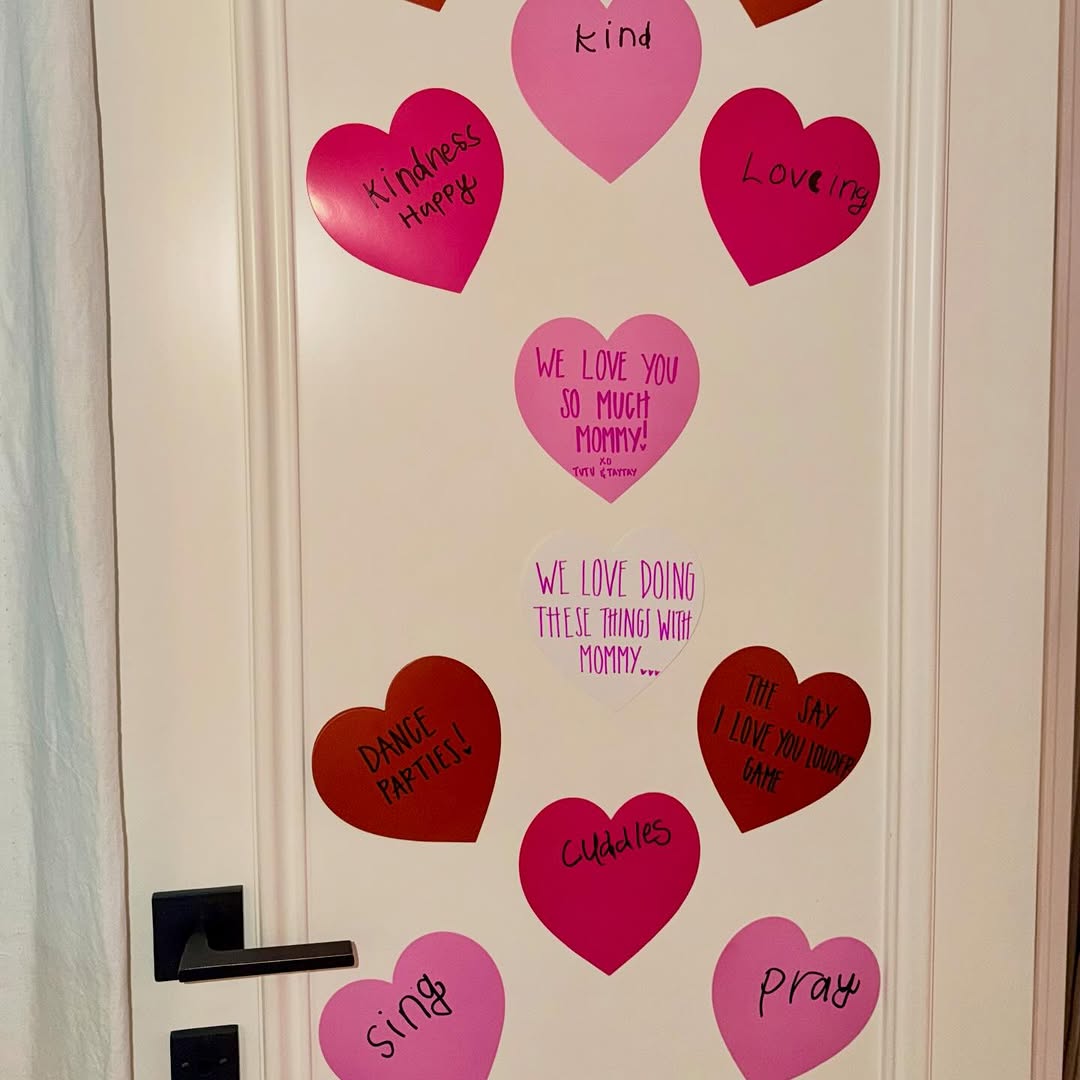 Kind
Kindness
Happy
Loveing
WE LOVE YOU
SO MUCH
MOMMY!
XO
TUTU & TAYTAY
WE LOVE DOING
THESE THINGS WITH
MOMMY...
DANCE
PARTIES!
THE SAY
I LOVE YOU LOUDER
GAME
cuddles
sing
pray